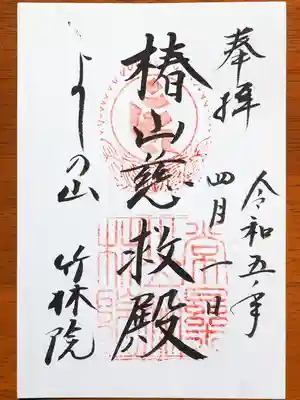 奉拝
令和五年
四月一日
椿山慈救殿
よしの山
竹林院